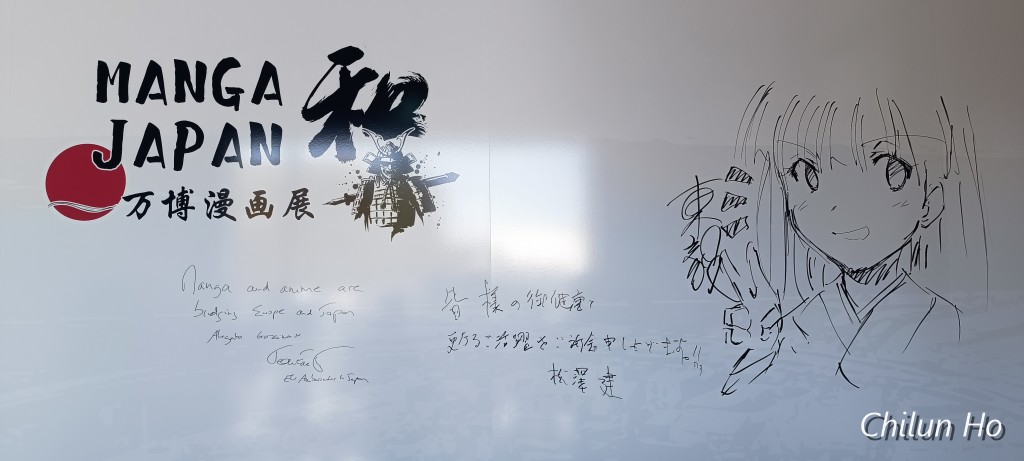 MANGA
JAPAN 和
万博漫画展
Manga and anime are
bridging Europe and Japan
Arigato Gozaimasu
EU Ambassador to Japan
皆様の御健康と
更なるご活躍をご祈念申し上げます。
松澤 建
Chilun Ho